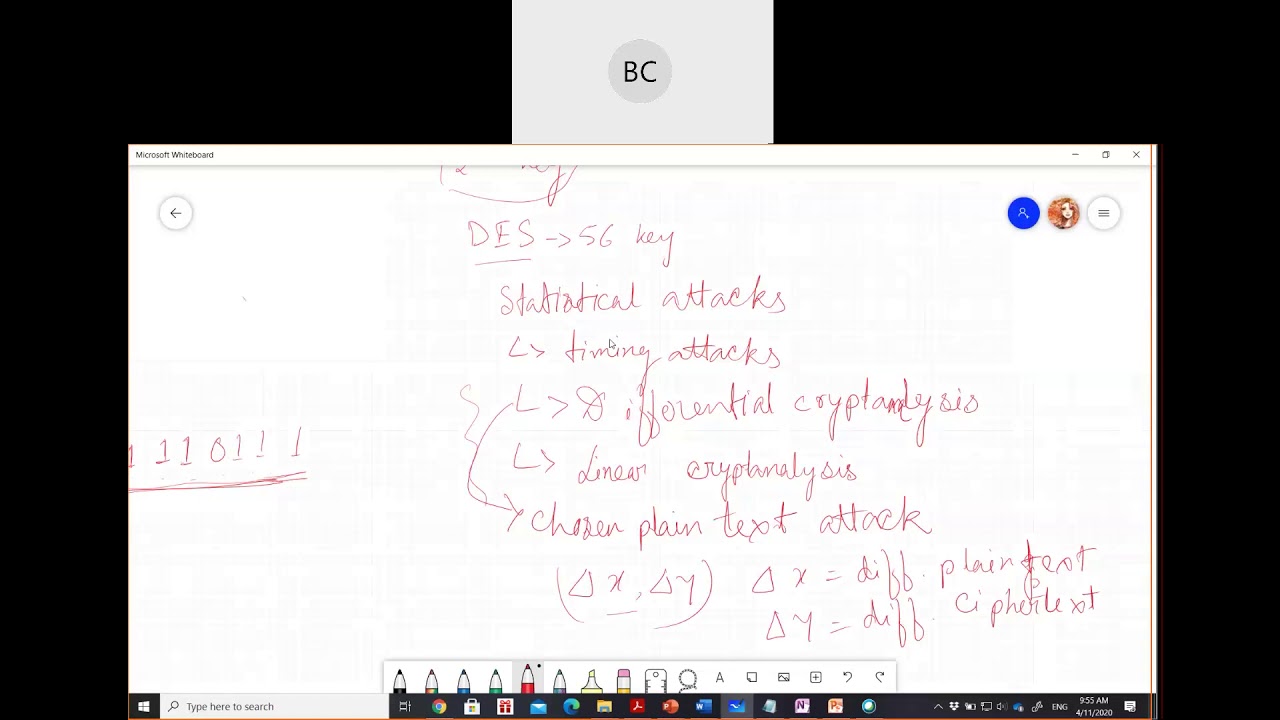 BC
Microsoft Whiteboard
key
DES -> 56 key
Statistical attacks
↳ timing attacks
↳ Differential cryptanalysis
1 1 1 0 1 1 1
↳ Linear cryptanalysis
chosen plain text attack
(Δx, Δy) Δx = diff. plain text
Δy = diff. ciphertext
A
Type here to search
ENG
9:55 AM
4/11/2020